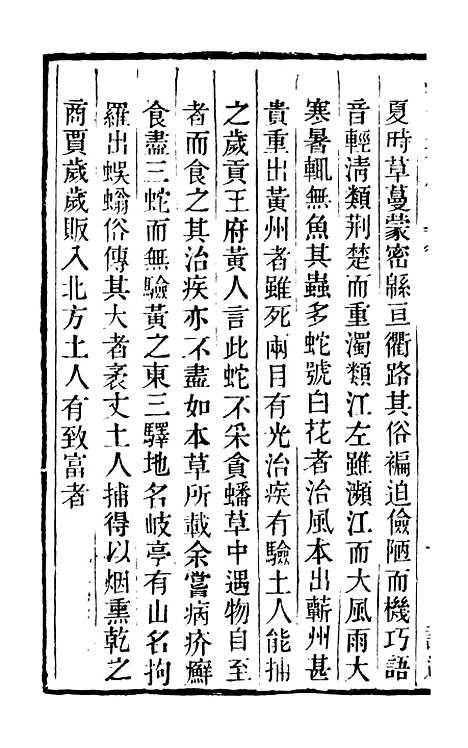 夏時草蔓蒙密緜亘衢路其俗褊迫儉陋而機巧語
音輕清類荆楚而重濁類江左雖瀕江而大風雨大
寒暑輒無魚其蟲多蛇號白花者治風本出蘄州甚
貴重出黃州者雖死兩目有光治疾有驗土人能捕
之歲貢王府黃人言此蛇不采食蟠草中遇物自至
者而食之其治疾亦不盡如本草所載余嘗病疥癬
食盡三蛇而無驗黃之東三驛地名岐亭有山名拘
羅出蜈蚣俗傳其大者袤丈土人捕得以烟熏乾之
商賈歲歲販入北方土人有致富者